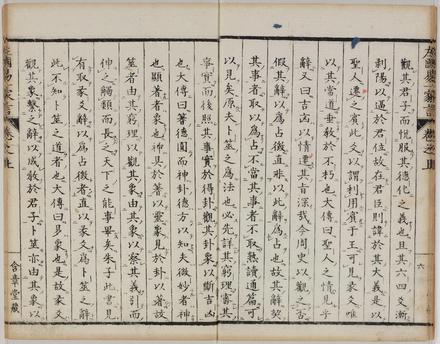 觀其君子而悅服其德化之義也且其六四爻漸
剝陽以逼於君位故在君臣則諱於其大義是以
聖人還之賓此爻以謂利用賓于王可見象爻唯
以其當道垂敎於不朽也大傳曰聖人之情見乎
辭又曰吉凶以情遷其旨深哉今周史以觀之否
假其辭以爲占徵直非以此辭爲占也故其辭契
其事者取以爲占不當其事者不取熟讀通篇可
以見矣原夫卜筮之爲法也必先詳其窮理審其
事實而後照其事實於得卦觀其卦象以斷吉凶
也大傳曰蓍德圓而神卦德方以知夫微妙者神
也顯著者象也神具於蓍以寓象見於卦以著故
筮者由其窮理以觀其象由其象以察其義引而
伸之觸類而長之天下之能事畢矣朱子此書見
有取彖爻辭以爲占徵者直以彖爻爲卜筮之辭
此不知卜筮之道者也大傳曰易象也是故彖爻
觀其象繫之辭以成敎於君子卜筮亦由其象以
六
含章堂藏